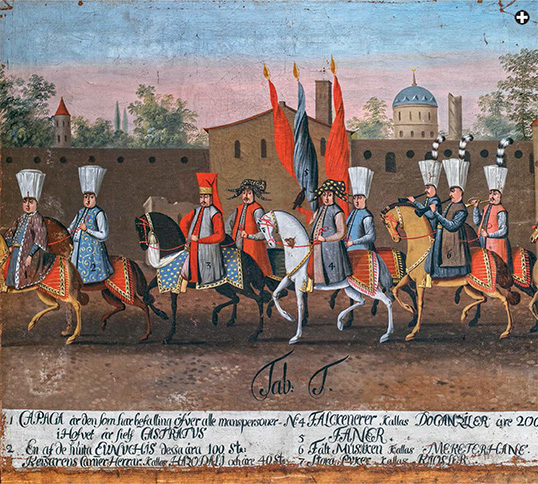 Tab. T.
1 CAPAGA är den som har befalling öfver alle manspersoner
i Hofvet är sielf CASTRATUS
2 En af de hvita EUNUCHIS dessa äro 100 St:
Keisarens Herrar. kallas HAZODALI och äro 40 St:
No 4 FALCKENERER kallas DOGANZILER äre 200
5 FANER
6 Fält Musiken kallas MERETERHANE
7 kallas